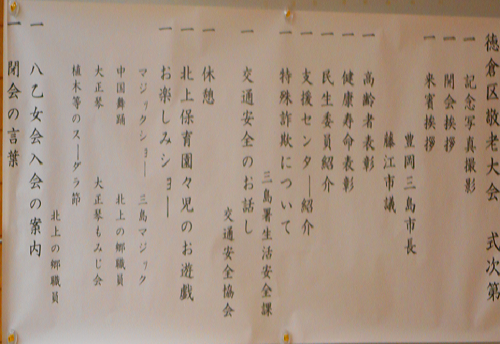 徳倉区敬老大会 式次第
一 記念写真撮影
一 開会挨拶
一 来賓挨拶
豊岡三島市長
藤江市議
一 高齢者表彰
一 健康寿命表彰
一 民生委員紹介
一 支援センター紹介
一 特殊詐欺について
三島署生活安全課
一 交通安全のお話し
交通安全協会
一 休憩
一 北上保育園々児のお遊戯
一 お楽しみショー
マジックショー 三島マジック
中国舞踊 北上の郷職員
大正琴 大正琴もみじ会
植木等のスーダラ節
北上の郷職員
一 八乙女会入会の案内
一 閉会の言葉